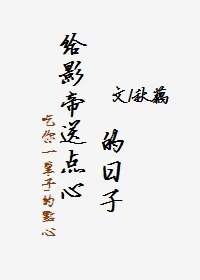 给影帝送点心
的日子
文/秋藕
吃你一輩子的點心